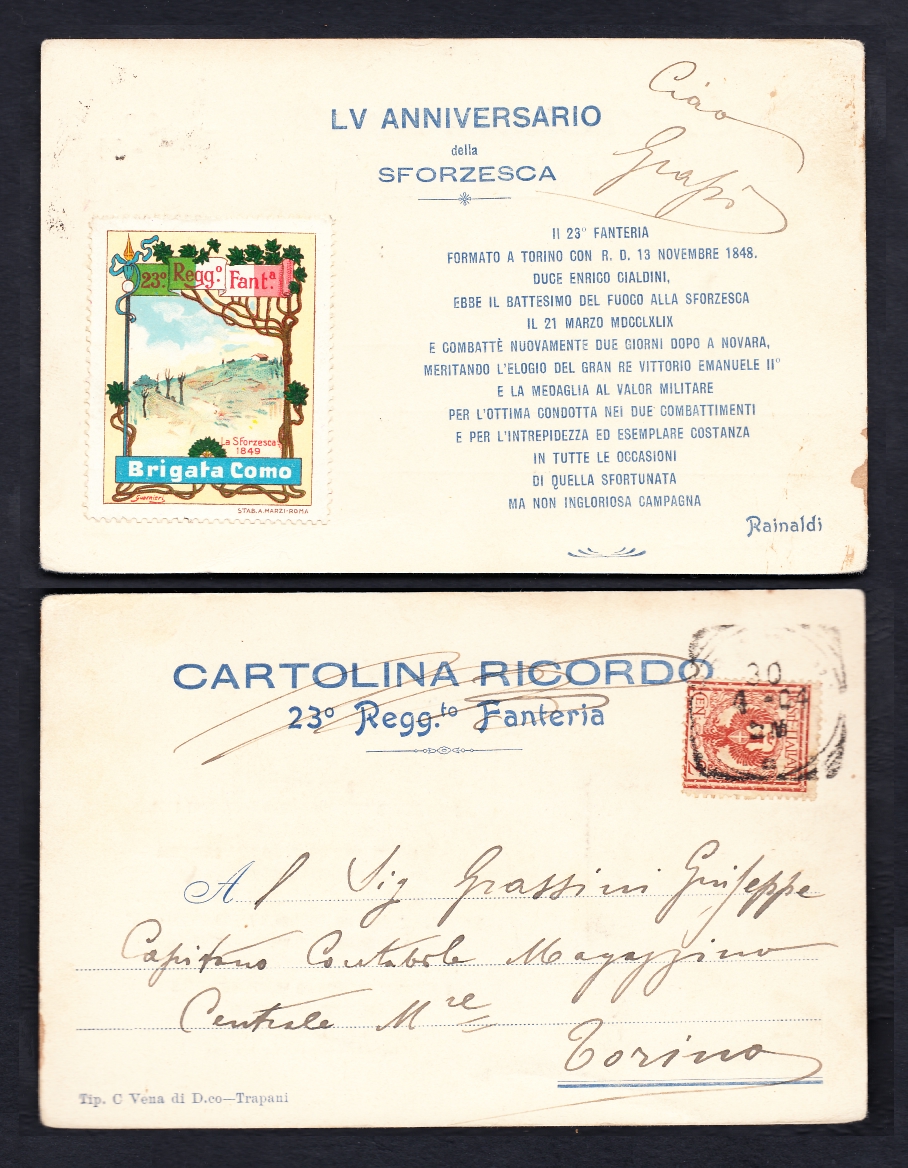 LV ANNIVERSARIO
della
SFORZESCA
Ciao
Il 23º FANTERIA
FORMATO A TORINO CON R. D. 13 NOVEMBRE 1848.
DUCE ENRICO CIALDINI,
EBBE IL BATTESIMO DEL FUOCO ALLA SFORZESCA
IL 21 MARZO MDCCLXLIX
E COMBATTÈ NUOVAMENTE DUE GIORNI DOPO A NOVARA,
MERITANDO L'ELOGIO DEL GRAN RE VITTORIO EMANUELE IIº
E LA MEDAGLIA AL VALOR MILITARE
PER L'OTTIMA CONDOTTA NEI DUE COMBATTIMENTI
E PER L'INTREPIDEZZA ED ESEMPLARE COSTANZA
IN TUTTE LE OCCASIONI
DI QUELLA SFORTUNATA
MA NON INGLORIOSA CAMPAGNA
Rainaldi
23º. Regg.º Fant.ª
La Sforzesca
1849
Brigata Como
Guerrieri
STAB. A. MARZI-ROMA
CARTOLINA RICORDO
23º Regg.to Fanteria
30
4 -04
Al Sig Grassini Giuseppe
Capitano Contabile Magazzino
Centrale Mre
Torino
Tip. C Vena di D.co—Trapani